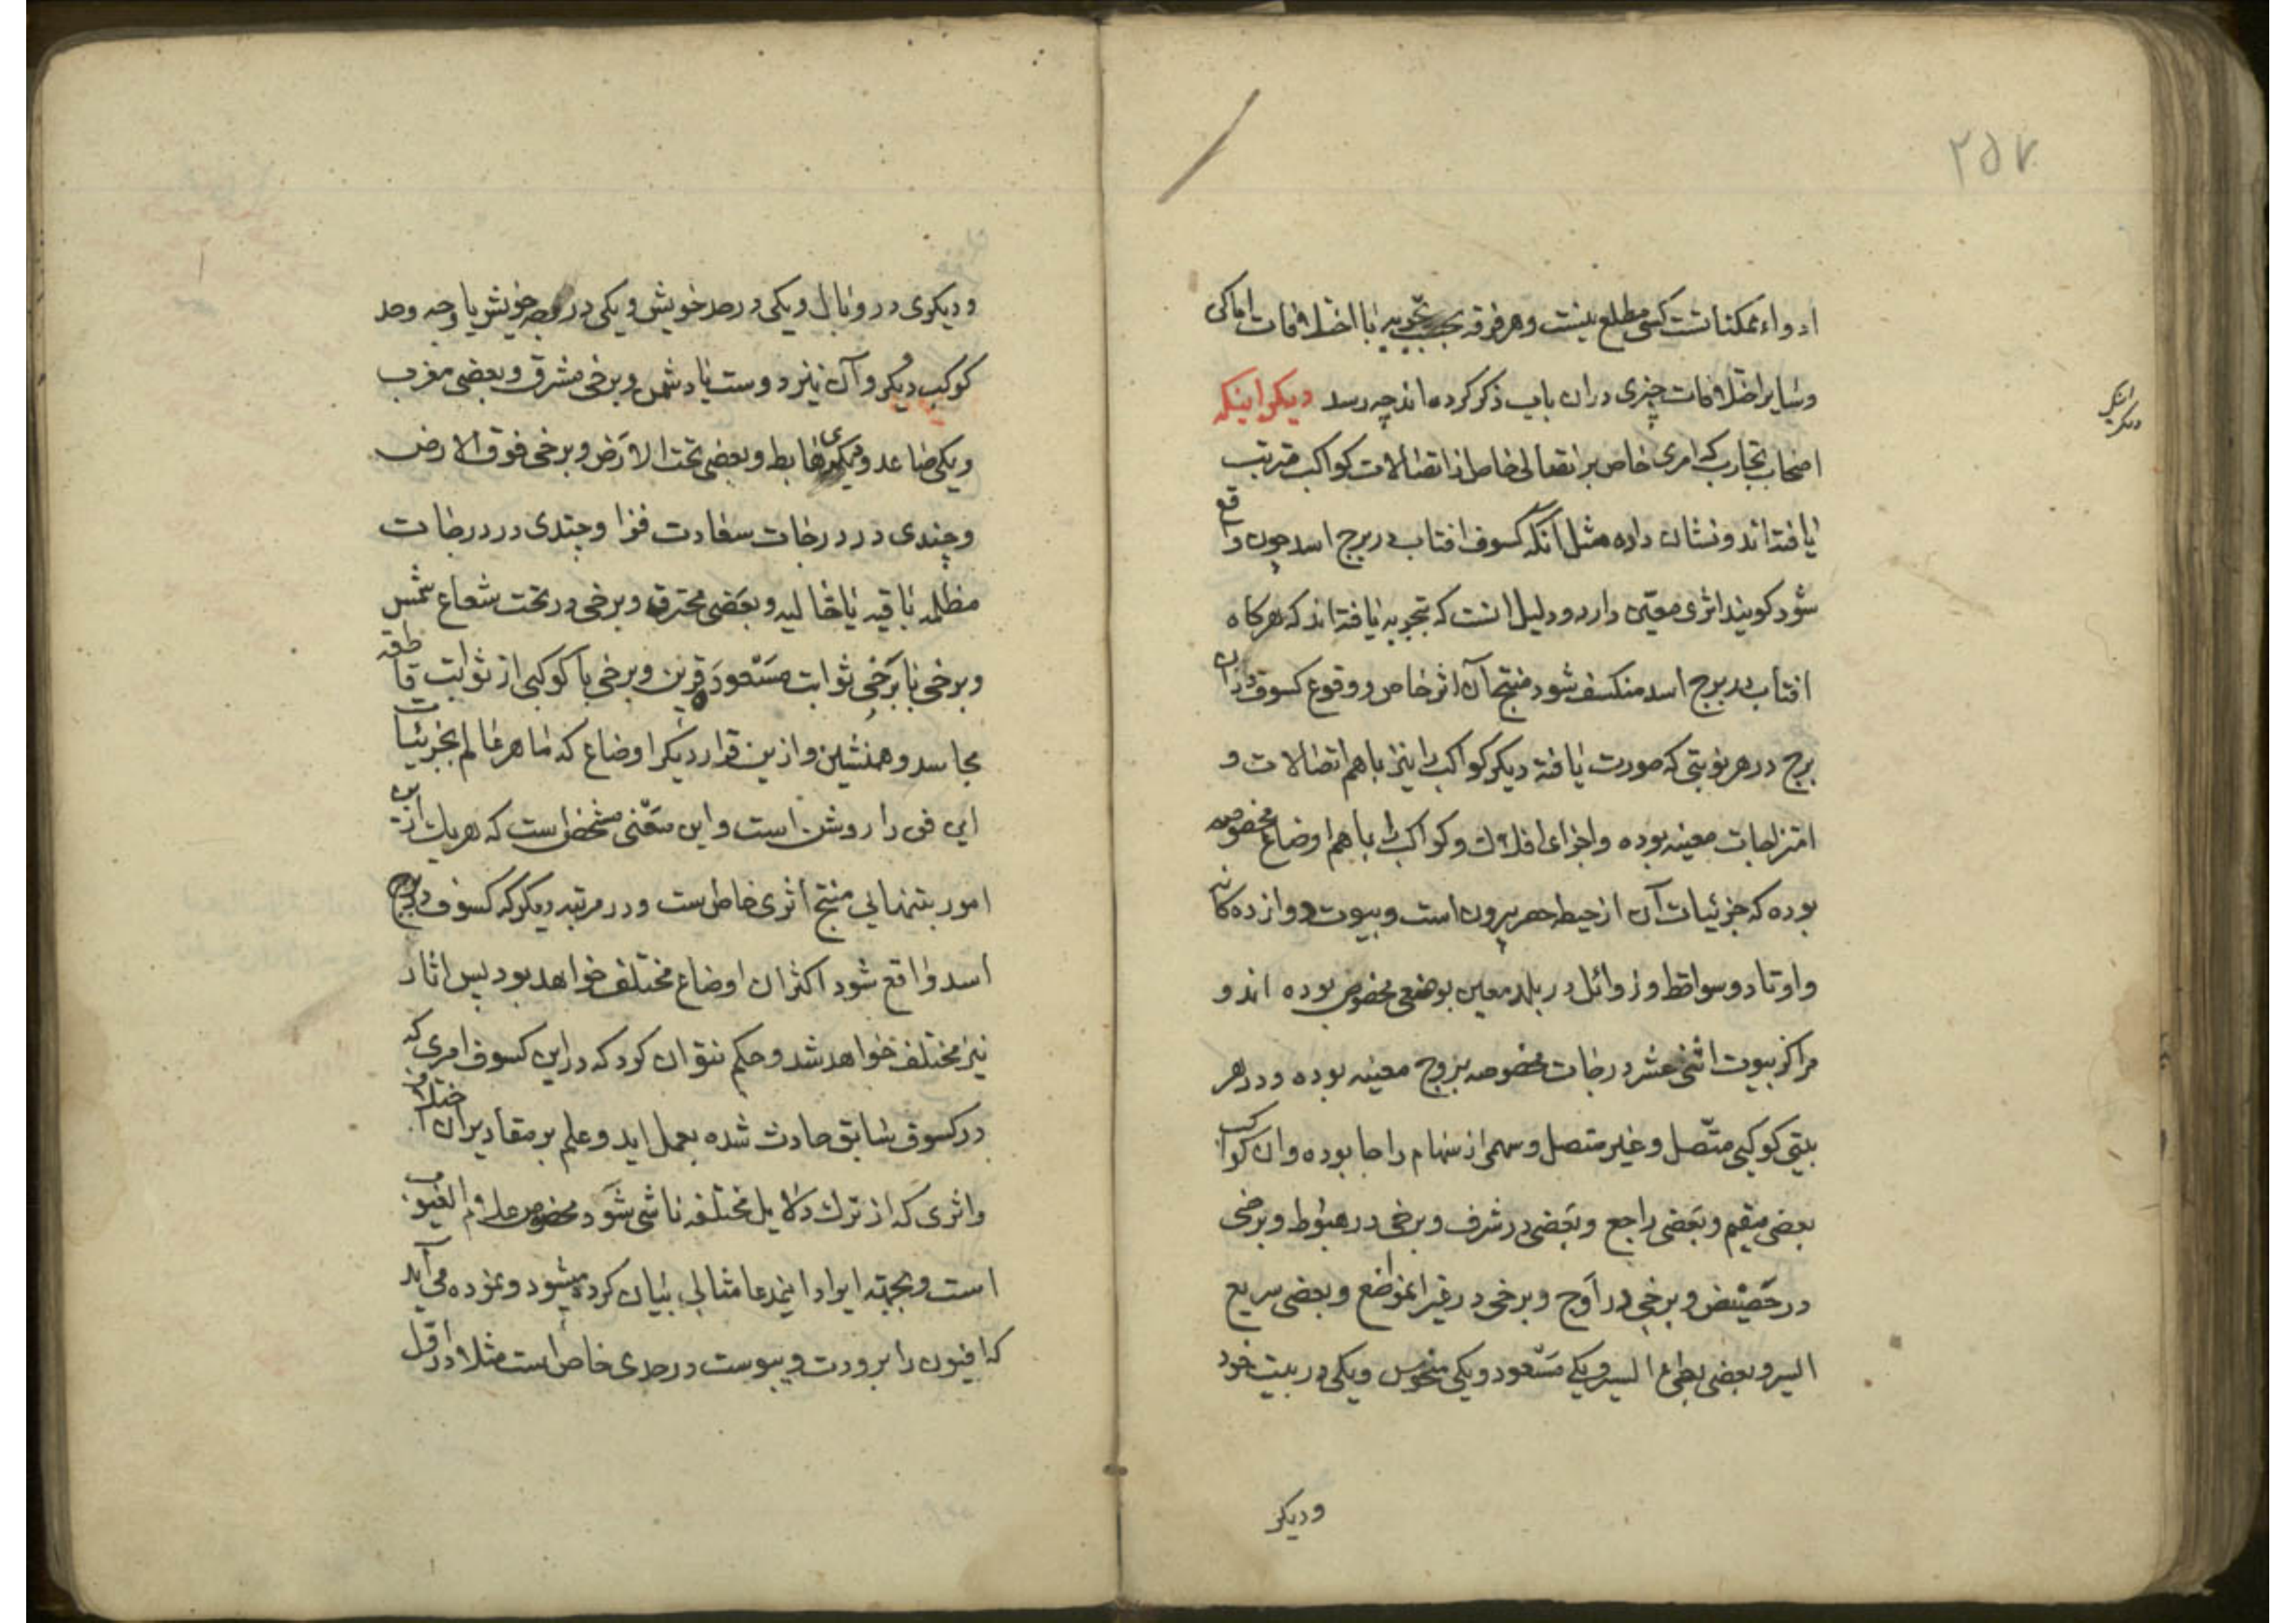 ۲۵۷
ادواء ممکناتست کسی مطلع نیست و هر فرقه بحسب تجویر با اختلافات اماکن
و سایر اختلافات چیزی دران باب ذکر کرده اند چه رسد دیکر اینکه
اصحاب تجارب که امری خاص بر اتصالی خاص از اتصالات کواکب مترتب
یافته اند و نشان داده مثل آنکه کسوف افتاب در برج اسد چون واقع
شود کویند اثری معین دارد و دلیل انست که بتجربه یافته اند که هرکاه
افتاب در برج اسد منکسف شود منتج آن اثر خاص و وقوع کسوف دران
برج در هر نوبتی که صورت یافته دیکر کواکب را نیز با هم اتصالات و
امتزاجات معینه بوده و اجزای افلاک و کواکب را با هم اوضاع مخصوصه
بوده که جزئیات آن از حیطه حصر بیرون است و بیوت دوازده کانه
و اوتاد و سواقط و زوائل در بلد معین بوضعی مخصوص بوده اند و
مراکز بیوت اثنی عشر درجات مخصوصه بروج معینه بوده و در هر
بیتی کوکبی متّصل و غیر متصل و سهمی از سهام را جا بوده و ان کواکب
بعضی مقیم و بعضی راجع و بعضی در شرف و برخی در هبوط و برخی
در حضیض و برخی در اوج و برخی در غیر انمواضع و بعضی سریع
السیر و بعضی بطی السیر و یکی مسعود و یکی منحوس و یکی در بیت خود
و دیکر
دیکر اینکه
و دیکری در وبال و یکی در حد خویش و یکی در وجه خویش یا وجه و حد
کوکب دیکر و آن نیز دوست یا دشمن و برخی مشرق و بعضی مغرب
و یکی صاعد و دیکری هابط و بعضی تحت الارض و برخی فوق الارض
و چندی در درجات سعادت فزا و چندی در درجات
مظلمه یا قیه یا خالیه و بعضی محترقه و برخی در تحت شعاع شمس
و برخی با برخی ثوابت مسعود قرین و برخی با کوکبی از ثوابت قاطعه
مجاسد و همنشین و ازین قرار دیکر اوضاع که ماهر عالم بجزئیات
این فن را روشن است و این معنی مشخص است که هریک ازین
امور بتنهایی منتج اثری خاص است و در مرتبه دیکر که کسوف در برج
اسد واقع شود اکثر ان اوضاع مختلف خواهد بود پس اثار
نیز مختلف خواهد شد و حکم نتوان کرد که در این کسوف امری که
در کسوف سابق حادث شده بعمل اید و علم بر مقادیر ان اختلاف
و اثری که از ترک دلایل مختلفه ناشی شود مخصوص علام الغیوب
است و بجهته ایراد اینمدعا مثالی بیان کرده میشود و نموده می آید
که افیون را برودت و یبوست در حدی خاص است مثلا در اقل